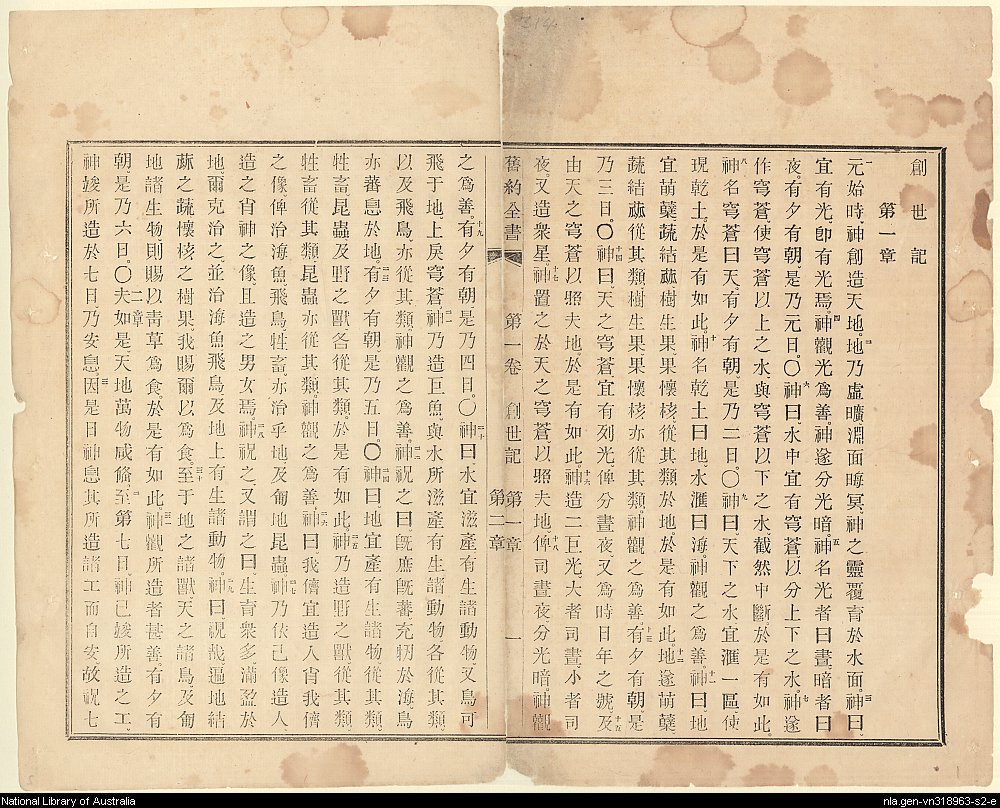 創世記
第一章
一元始時神創造天地。二地乃虛曠淵面晦冥、神之靈覆育於水面。三神曰、
宜有光、卽有光焉。四神觀光為善。神遂分光暗、五神名光者曰晝、暗者曰
夜。有夕有朝、是乃元日。〇六神曰、水中宜有穹蒼、以分上下之水。七神遂
作穹蒼、使穹蒼以上之水與穹蒼以下之水截然中斷、於是有如此。
八神名穹蒼曰天。有夕有朝、是乃二日。〇九神曰、天下之水宜滙一區、使
現乾土。於是有如此。十神名乾土曰地、水滙曰海。神觀之為善。十一神曰、地
宜萌蘖、蔬結蓏、樹生果、果懷核、從其類於地。於是有如此。十二地遂萌蘖、
蔬結蓏從其類、樹生果果懷核、亦從其類。神觀之為善。十三有夕有朝、是
乃三日。〇十四神曰、天之穹蒼、宜有列光、俾分晝夜、又為時日年之號、十五及
由天之穹蒼以照夫地。於是有如此。十六神造二巨光、大者司晝、小者司
夜、又造衆星。十七神置之於天之穹蒼、以照夫地、十八俾司晝夜、分光暗。神觀
舊約全書 第一卷 創世記 第一章 第二章 一
之為善。十九有夕有朝是乃四日。〇二十神曰、水宜滋產有生諸動物、又鳥可
飛于地上、戾穹蒼。二一神乃造巨魚、與水所滋產有生諸動物、各從其類、
以及飛鳥、亦從其類。神觀之為善。二二神祝之曰、旣庶旣蕃、充牣於海、鳥
亦蕃息於地。二三有夕有朝、是乃五日。〇二四神曰、地宜產有生諸物、從其類、
牲畜昆蟲及野之獸、各從其類。於是有如此。二五神乃造野之獸從其類、
牲畜從其類、昆蟲亦從其類。神觀之為善。二六神曰、我儕宜造人、肖我儕
之像、俾治海魚、飛鳥、牲畜、亦治乎地、及匍地昆蟲。二七神乃依己像造人、
造之肖神之像、且造之男女焉。二八神祝之、又謂之曰、生育衆多、滿盈於
地、爾克治之、並治海魚飛鳥及地上有生諸動物。二九神曰、視哉、遍地結
蓏之蔬、懷核之樹果、我賜爾以為食。三十至于地之諸獸、天之諸鳥、及匍
地諸生物、則賜以靑草為食。於是有如此。三一神觀所造者甚善。有夕有
朝、是乃六日。〇二章夫如是、天地萬物咸備。二至第七日、神已竣所造之工。
神竣所造、於七日乃安息。三因是日神息其所造諸工而自安、故祝七
National Library of Australia
nla.gen-vn318963-s2-e